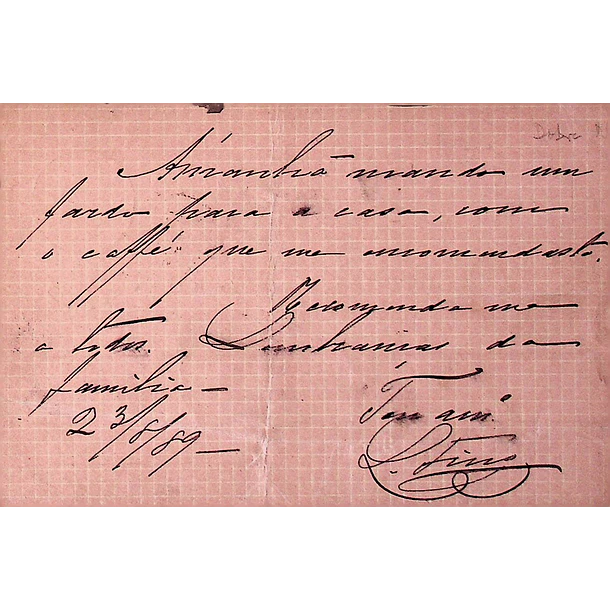 Amanhã mando um
fardo para a casa, com
o caffé que me encomendaste.
Recomenda me
a todos. Lembranças da
familia —
Teu am.º
23/8/89 —